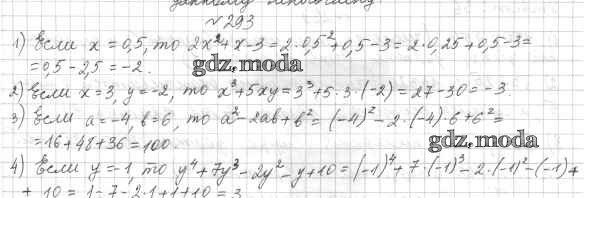 данному многочлену
№293
1) Если x = 0,5, то 2x²+x-3 = 2·0,5²+0,5-3 = 2·0,25+0,5-3=
=0,5-2,5=-2.
gdz.moda
2) Если x=3, y=-2, то x³+5xy=3³+5·3·(-2)=27-30=-3.
3) Если a=-4, b=6, то a²-2ab+b²=(-4)²-2·(-4)·6+6²=
=16+48+36=100.
gdz.moda
4) Если y=-1, то y⁴+7y³-2y²-y+10=(-1)⁴+7·(-1)³-2·(-1)²-(-1)+
+10=1-7-2·1+1+10=3